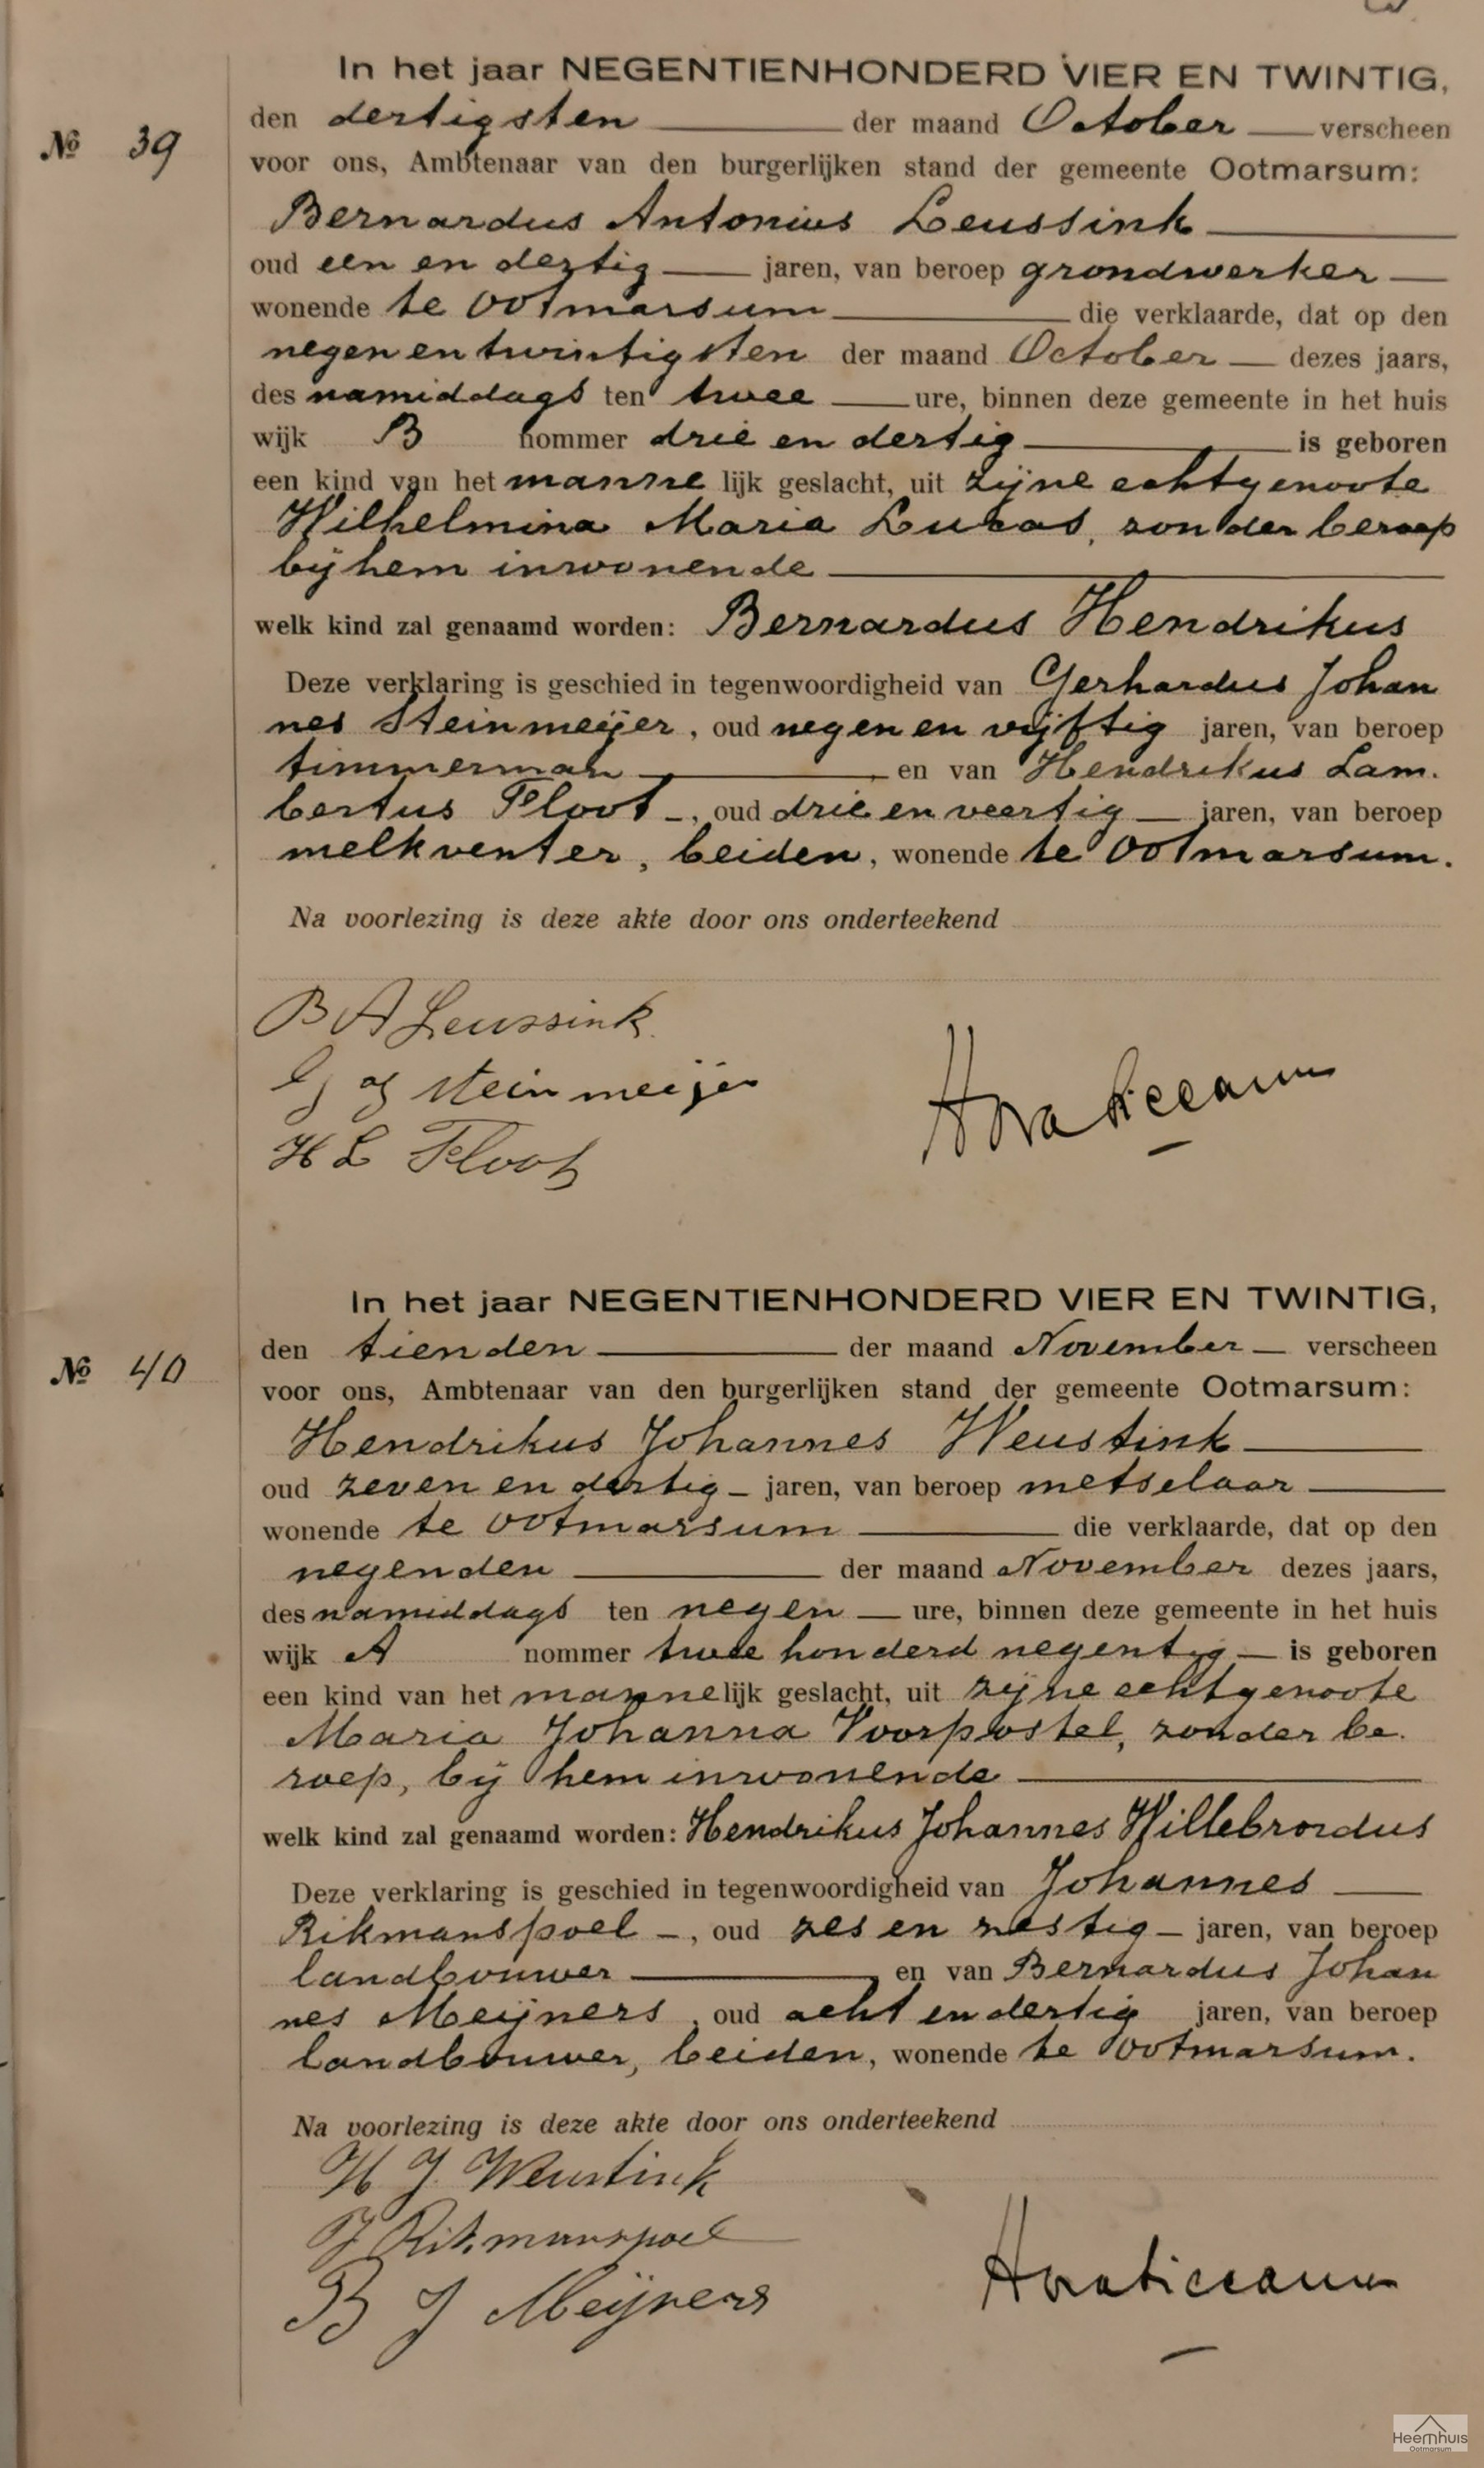 In het jaar NEGENTIENHONDERD VIER EN TWINTIG,
№ 39
den dertigsten der maand October verscheen
voor ons, Ambtenaar van den burgerlijken stand der gemeente Ootmarsum:
Bernardus Antonius Leussink
oud een en dertig jaren, van beroep grondwerker
wonende te Ootmarsum die verklaarde, dat op den
negen en twintigsten der maand October dezes jaars,
des namiddags ten twee ure, binnen deze gemeente in het huis
wijk B nommer drie en dertig is geboren
een kind van het manne lijk geslacht, uit zijne echtgenoote
Wilhelmina Maria Lucas, zonder beroep
bij hem inwonende
welk kind zal genaamd worden: Bernardus Hendrikus
Deze verklaring is geschied in tegenwoordigheid van Gerhardus Johan
nes Steinmeijer, oud negen en vijftig jaren, van beroep
timmerman en van Hendrikus Lam.
bertus Floot, oud drie en veertig jaren, van beroep
melkventer, beiden, wonende te Ootmarsum.
Na voorlezing is deze akte door ons onderteekend
B A Leussink
G J Steinmeijer
H L Floot
In het jaar NEGENTIENHONDERD VIER EN TWINTIG,
№ 40
den tienden der maand November verscheen
voor ons, Ambtenaar van den burgerlijken stand der gemeente Ootmarsum:
Hendrikus Johannes Weustink
oud zeven en dertig jaren, van beroep metselaar
wonende te Ootmarsum die verklaarde, dat op den
negenden der maand November dezes jaars,
des namiddags ten negen ure, binnen deze gemeente in het huis
wijk A nommer twee honderd negentig is geboren
een kind van het mannelijk geslacht, uit zijne echtgenoote
Maria Johanna Voorpostel, zonder be.
roep, bij hem inwonende
welk kind zal genaamd worden: Hendrikus Johannes Willebrordus
Deze verklaring is geschied in tegenwoordigheid van Johannes
Rikmanspoel, oud zes en zestig jaren, van beroep
landbouwer en van Bernardus Johan
nes Meijners, oud acht en dertig jaren, van beroep
landbouwer, beiden, wonende te Ootmarsum.
Na voorlezing is deze akte door ons onderteekend
H J Weustink
J Rikmanspoel
B J Meijners
Heemhuis
Ootmarsum